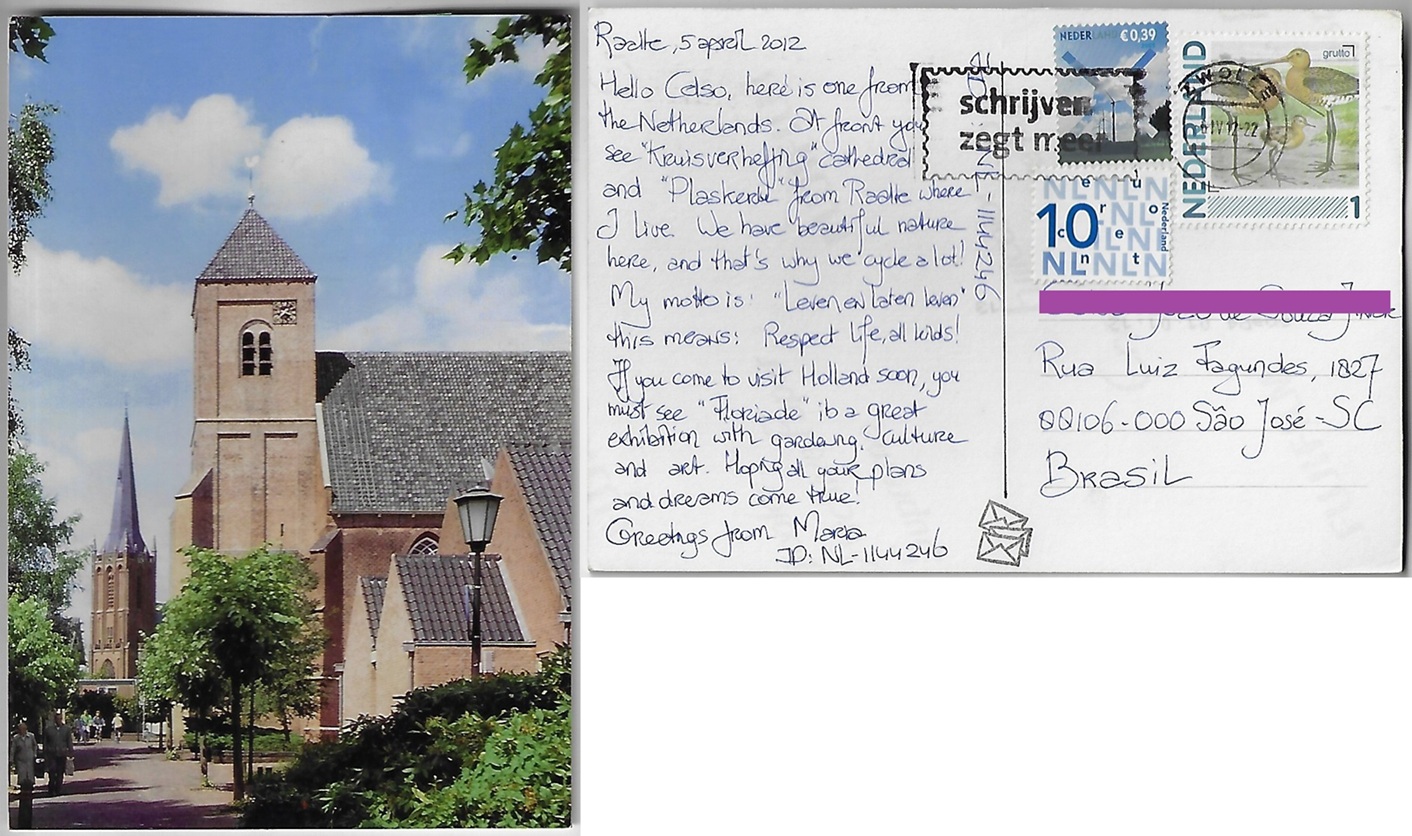 Raalte, 5 april 2012
Hello Celso, here is one from
the Netherlands. At front you
see "Kruisverheffing" cathedral
and "Plaskerk" from Raalte where
I live. We have beautiful nature
here, and that's why we cycle a lot!
My motto is: "Leven en laten leven"
this means: Respect life, all kinds!
If you come to visit Holland soon, you
must see "Floriade" is a great
exhibition with gardening, culture
and art. Hoping all your plans
and dreams come true!
Greetings from Maria
ID: NL-1144246
NL-1144246
schrijven
zegt meer
NEDERLAND €0,39
NEDERLAND
grutto
1
10
euro
cent
Nederland
NLNLNL
ZWOLLE
IV 12-22
Rua Luiz Fagundes, 1827
88106-000 São José-SC
Brasil